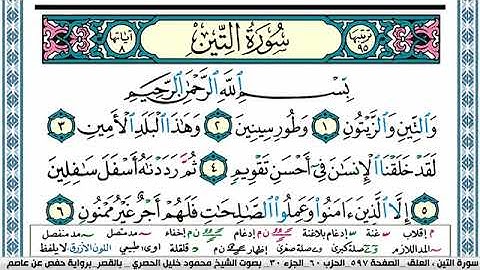 ترتيبها ٩٥ سُورَةُ التِّينِ آياتها ٨
بِسْمِ اللَّهِ الرَّحْمَٰنِ الرَّحِيمِ
وَالتِّينِ وَالزَّيْتُونِ ١ وَطُورِ سِينِينَ ٢ وَهَٰذَا الْبَلَدِ الْأَمِينِ ٣
لَقَدْ خَلَقْنَا الْإِنسَانَ فِي أَحْسَنِ تَقْوِيمٍ ٤ ثُمَّ رَدَدْنَاهُ أَسْفَلَ سَافِلِينَ
٥ إِلَّا الَّذِينَ ءَامَنُوا وَعَمِلُوا الصَّالِحَاتِ فَلَهُمْ أَجْرٌ غَيْرُ مَمْنُونٍ ٦
م إقلاب غنة إدغام بلاغنة إدغام إخفاء مد متصل مد منفصل
المد اللازم صلة كبرى صلة صغرى إظهار قلقلة أوى، طبيعي اللون الأزرق: لا يلفظ
سورة التين ، العلق . الصفحة ٥٩٧ . الحزب ٦٠ . الجزء ٣٠ . بصوت الشيخ محمود خليل الحصري _ بالقصر_ برواية حفص عن عاصم